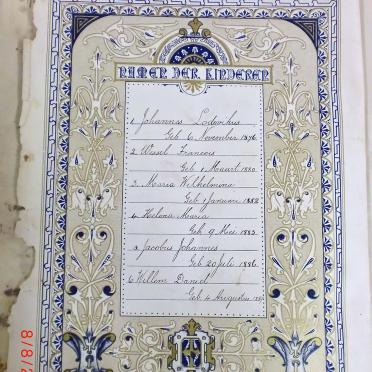 NAMEN DER KINDEREN
1 Johannes Lodovikus
Geb 6 November 1876
2 Wessel Francois
Geb 1 Maart 1880
3 Maria Wilhelmina
Geb 1 Januari 1882
4 Helena Maria
Geb 9 Mei 1883
5 Jacobus Johannes
Geb 20 Juli 1886
6 Willem Daniel
Geb 4 Augustus
8/8/2